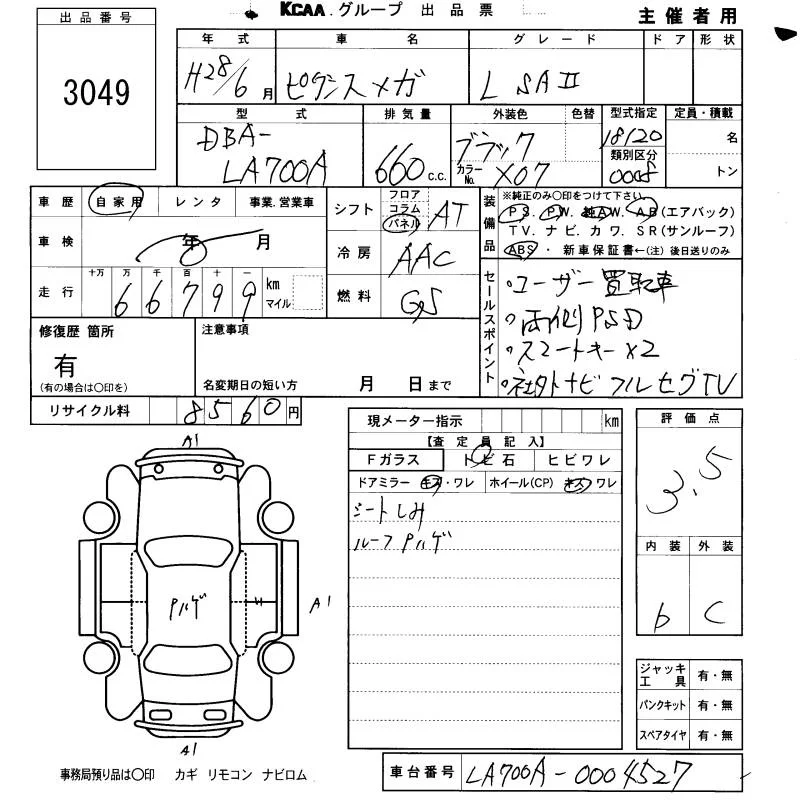 KCAA.グループ 出品票
主催者用
出品番号
3049
年式 車名 グレード ドア 形状
H28/6月 ピクシスメガ L SAⅡ
型式 排気量 外装色 色替 型式指定 定員・積載
DBA-
LA700A 660 c.c. ブラック 18120 名
カラーNo. X07 類別区分 0008 トン
車歴 自家用 レンタ 事業.営業車
車検 年 月
走行 十万 万 千 百 十 一
66799 km マイル
シフト フロア コラム パネル AT
冷房 AAC
燃料 GS
装備品 ※純正のみ○印をつけて下さい
PS. PW. 純AW. AB(エアバック)
TV. ナビ. カワ. SR(サンルーフ)
ABS ・ 新車保証書←(注) 後日送りのみ
セールスポイント
・ユーザー買取車
・両側PSD
・スマートキーx2
・社外ナビフルセグTV
修復歴 箇所 注意事項
有
(有の場合は○印を) 名変期日の短い方 月 日まで
リサイクル料 8560円
現メーター指示 km
【査定員記入】
Fガラス トビ石 ヒビワレ
ドアミラー キズ・ワレ ホイール(CP) キズ ワレ
シートしみ
ルーフPハゲ
評価点
3.5
内装 外装
b C
A1
Pハゲ
A1
A1
ジャッキ工具 有・無
パンクキット 有・無
スペアタイヤ 有・無
事務局預り品は○印 カギ リモコン ナビロム
車台番号 LA700A-0004527